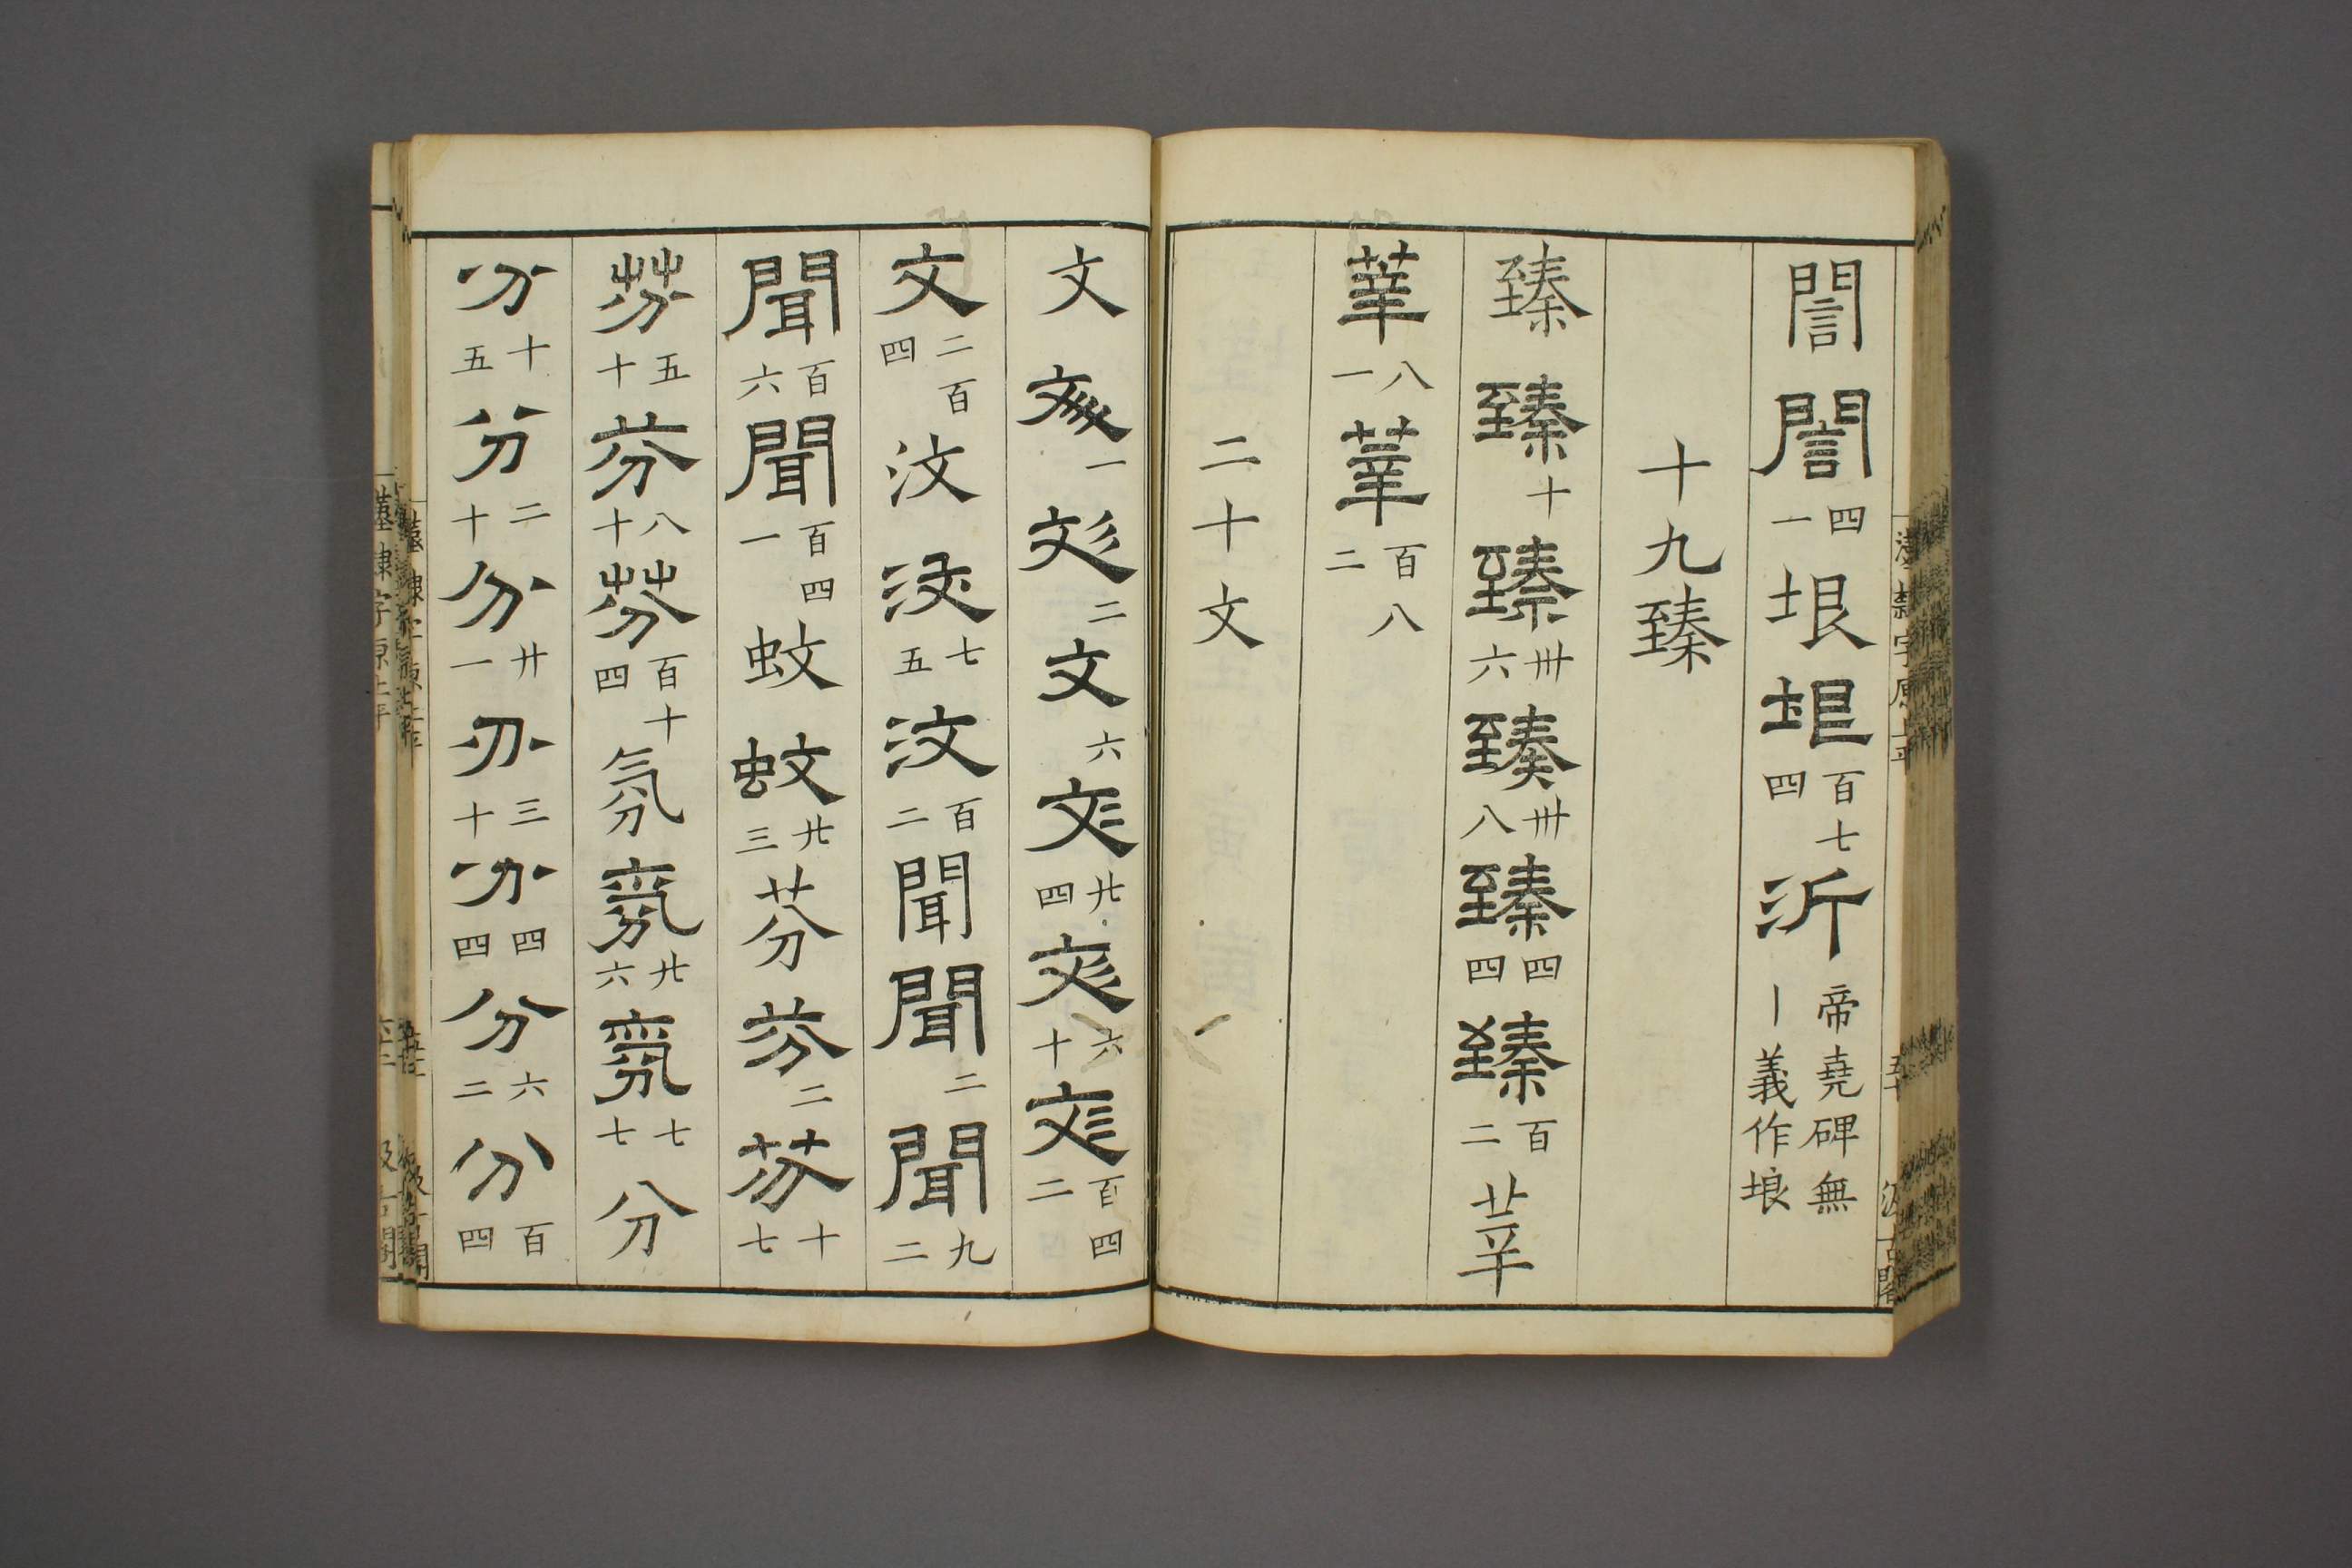 誾誾四一垠垠百七四沂帝堯碑無丨義作垠
十九臻
臻臻十臻卅六臻卅八臻四四臻百二莘
莘八一莘百八二
二十文
文文一文二文六文廿四文六十文百四二
文二百四汶汶七五汶百二聞聞二聞九二
聞百六聞百四一蚊蚊廿三芬芬二芬十七
芬五十芬八十芬百十四氛氛廿六氛七七分
分十五分二十分廿一分三十分四四分六二分百四
漢隸字原上平
汲古閣